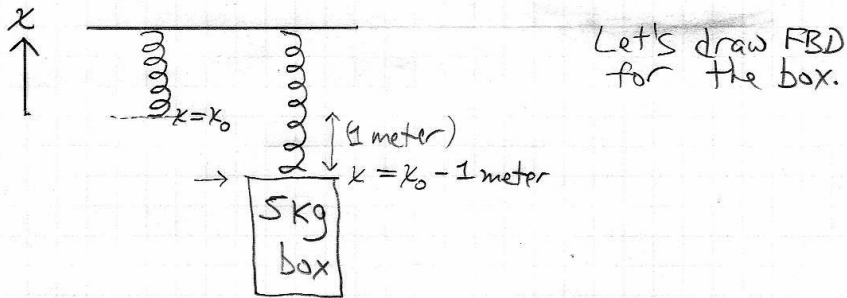 x
Let's draw FBD
for the box.
x=x₀
(1 meter)
x = x₀ - 1 meter
5kg
box